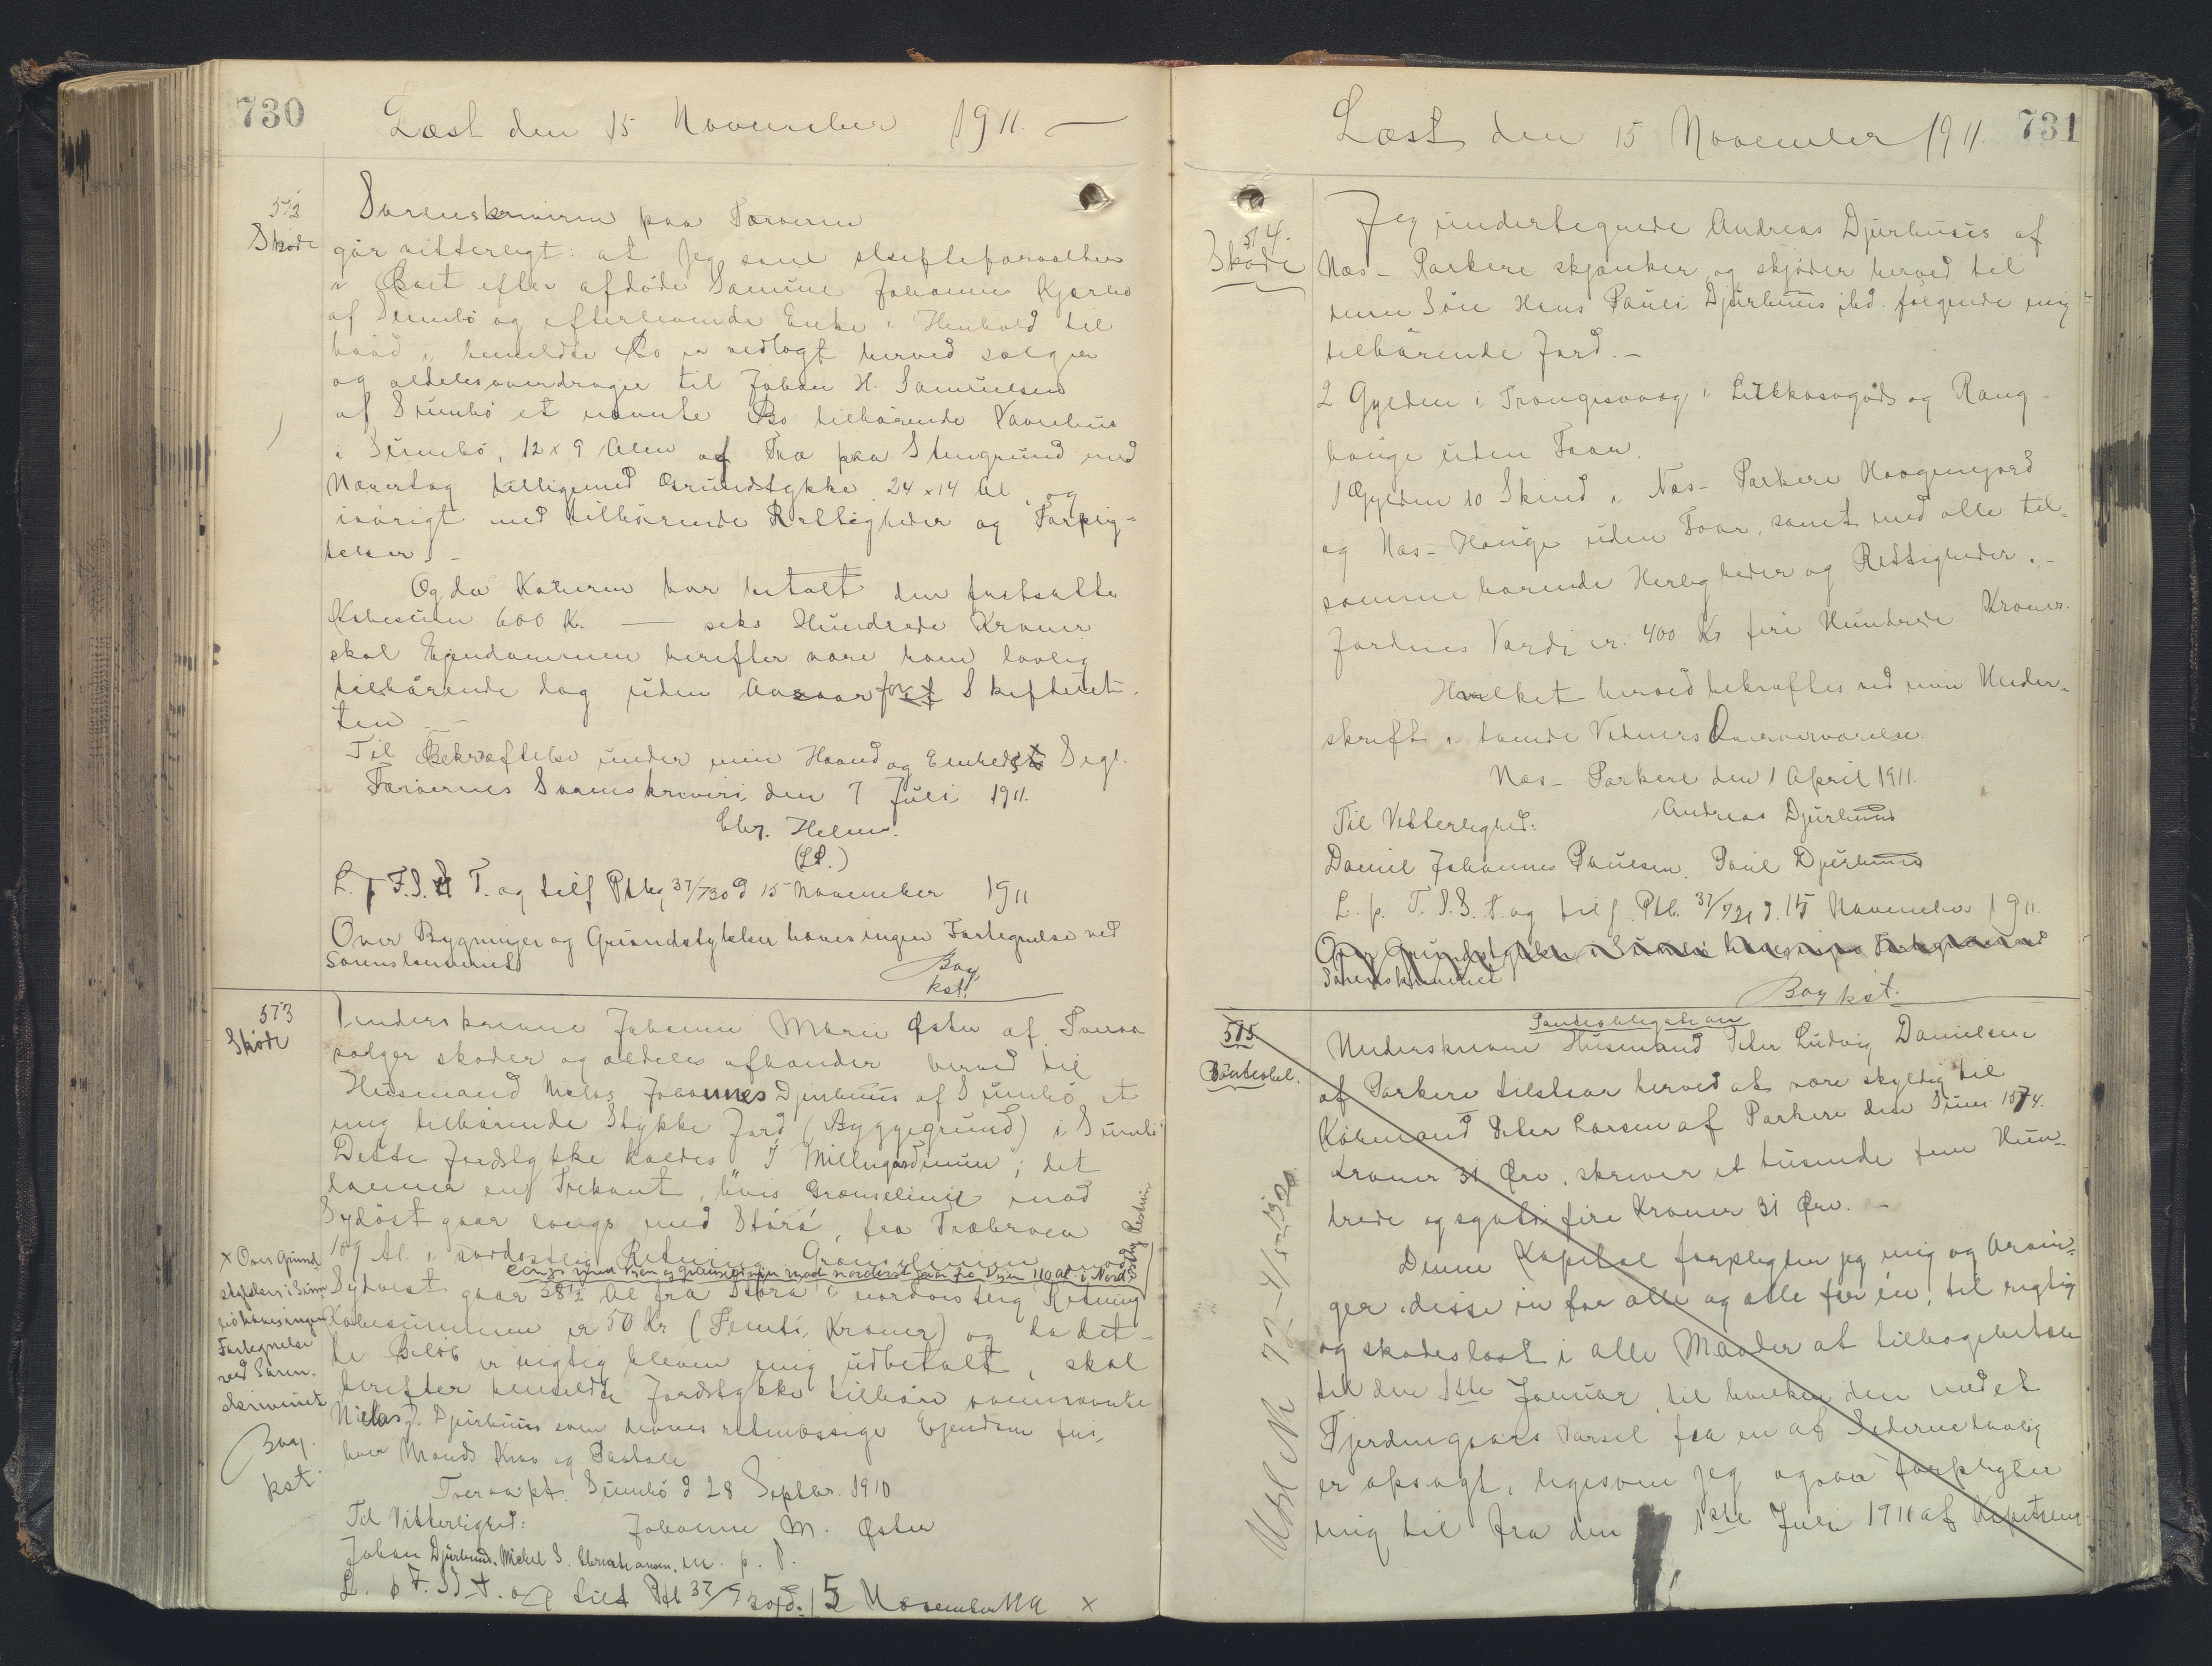 730
Læst den 15 November 1911. —
572
Skøde
Sorenskriveren paa Færøerne
gør vitterligt: at jeg som skifteforvalter
i Boet efter afdøde Samuel Johannes Kjærbo
af Sumbø og efterlevende Enke i Henhold til
bemeldte Bo er vedtagt herved sælger
og aldeles overdrager til Johan H. Samuelsen
af Sumbø et nævnte Bo tilhørende Vaanhus
i Sumbø, 12 x 9 Alen af Træ paa Stengrund med
Næ­vertag tilligemed Grundstykke 24 x 14 Al. og
iøvrigt med tilhørende Rettigheder og Forplig-
telser. —
Og da Køberen har betalt den fastsatte
Købesum 600 K. — seks Hundrede Kroner
skal Ejendommen herefter være ham lovlig
tilhørende dog uden Ansvar for Skifteret-
ten. —
Til Bekræftelse under min Haand og Embeds Segl.
Færøernes Sorenskriveri, den 7 Juli 1911.
Chr. Helms.
(LS.)
L. p F. S. T. og tilf Ptbg 37/730 d 15 November 1911
Over Bygninger og Grundstykker haves ingen Fortegnelse ved
Sorenskriveriet
Bay
kst.
573
Skøde
Underskrevne Johanne Marie Øster af Tveraa
sælger skøder og aldeles afhænder herved til
Husmand Niclas Johannes Djurhuus af Sumbø et
mig tilhørende Stykke Jord (Byggegrund) i Sumbø
Dette Jordstykke kaldes "I Millugardinum", det
danner en Trekant, hvis Grænselinie mod
Sydøst gaar langs med Stórá, fra Træbroen
109 Al. i nordøstlig Retning. Grænselinien mod
langs med Vejen og Grænselinjen mod nordøst gaar fra Vejen 110 Al. i Nord-
østlig Retning
Sydvest gaar 38½ Al fra Stórá i nordvestlig Retning
Købesummen er 50 Kr (Femti Kroner) og da det-
te Beløb er rigtig bleven mig udbetalt, skal
herefter bemeldte Jordstykke tilhøre ovennævnte
Niclas J. Djurhuus som dennes retmæssige Ejendom fri
hver Mands Krav og Paatale
Tveraa pt. Sumbø d 28 Septbr. 1910
Til Vitterlighed: Johanne M. Øster
Johan Djurhuus. Mickel S. Christiansen. m. p. P.
L. p F. S. T. og tilf Ptb 37/730 d. 15 November 1911 x
x Over Grund
stykker i Sum
bø haves ingen
Fortegnelse
ved Soren-
skriveriet
Bay.
kst.
731
Læst den 15 November 1911.
574.
Skøde
Jeg undertegnede Andreas Djurhuus af
Næs - Porkere skjænker og skjøder herved til
min Søn Hans Pauli Djurhuus ibd. følgende mig
tilhørende Jord. —
2 Gylden i Trongisvaag i Lukkasogøds og Rang-
hauge uden Faar.
1 Gylden 10 Skind i Næs - Porkere Haagenejord
og Næs - Hauge uden Faar, samt med alle til-
sammehørende Herligheder og Rettigheder. —
Jordnes Værdi er: 400 Kr fire Hundrede Kroner.
Hvilket herved bekræftes ved min Under-
skrift i tvende Vidners Overværelse.
Næs - Porkere den 1 April 1911.
Til Vitterlighed: Andreas Djurhuus
Daniel Johannes Poulsen. Poul Djurhuus
L. p. F. S. T. og tilf. Ptb. 37/731 d. 15 November 1911.
Over Grundstykker i Sumbø haves ingen Fortegnelse ved
Sorenskriveriet
Bay kst.
575
Panteobl.
Panteobligation
Underskrevne Husmand Peter Ludvig Danielsen
af Porkere tilstaar herved at være skyldig til
Købmand Peter Larsen af Porkere den Sum 1574.
Kroner 31 Øre, skriver et tusinde fem Hun-
drede og syvti fire Kroner 31 Øre. —
Denne Kapital forpligter jeg mig og Arvin-
ger, disse en for alle og alle for én, til rigtig
og skadesløst i alle Maader at tilbagebetale
til den 1ste Januar, til hvilken den med et
Fjerdingaars Varsel fra en af Siderne lovlig
er opsagt, ligesom jeg ogsaa forpligter
mig til fra den 1ste Juli 1911 af Kapitalens